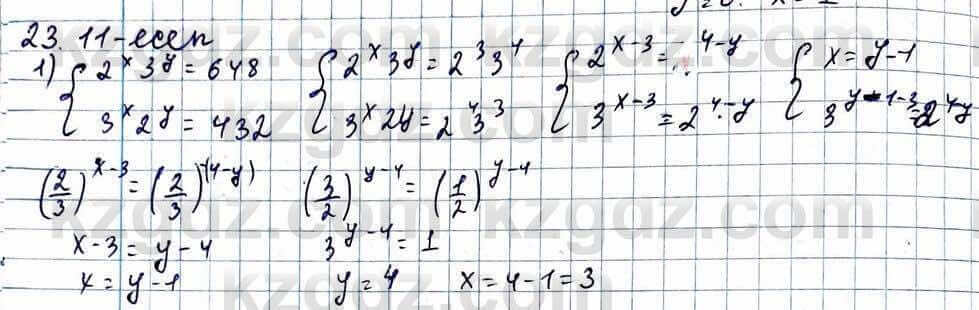 23. 11-есеп
1) { 2^x 3^y = 648
3^x 2^y = 432
{ 2^x 3^y = 2^3 3^4
3^x 2^y = 2^4 3^3
{ 2^(x-3) = 4-y
3^(x-3) = 2^(4-y)
{ x = y-1
3^(y-1-3) = 2^(4-y)
(2/3)^(x-3) = (2/3)^(4-y)
(3/2)^(y-4) = (1/2)^(y-4)
x-3 = y-4
3^(y-4) = 1
x = y-1
y = 4
x = 4-1 = 3
kzgdz.com
kzgdz.com
kzgdz.com